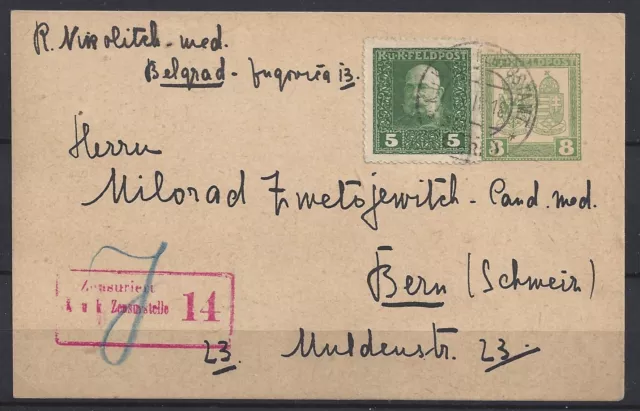 R. Nikolitch - med.
Belgrad - Jugovića 13.
K.u.K. FELDPOST
5 5
FELDPOST
8 8
Herrn
Milorad Zwetojewitch - Cand. med.
Bern (Schweiz)
23. Muldenstr. 23.
Zensuriert
K u k Zensurstelle 14